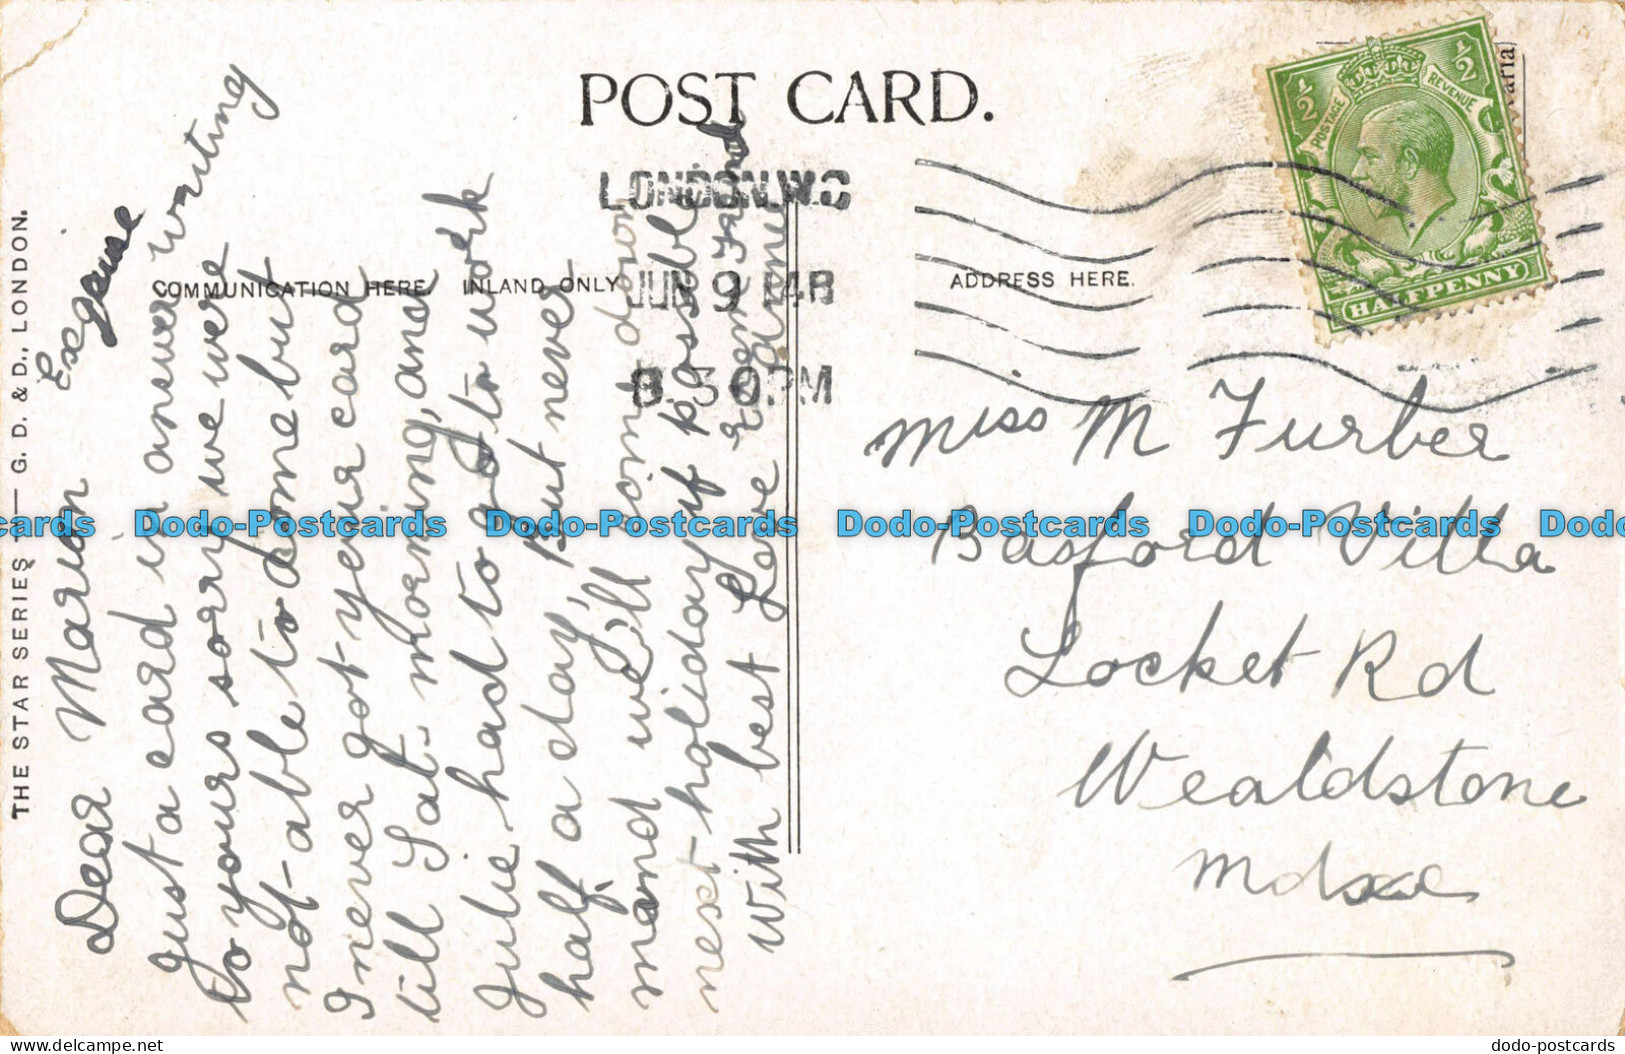 POST CARD.
COMMUNICATION HERE. INLAND ONLY.
ADDRESS HERE.
THE STAR SERIES — G. D. & D., LONDON.
LONDON.W.C
JUN 9 14B
8.30PM
½ ½
POSTAGE REVENUE
HALFPENNY
varia)
Dear Marion Exquse
Just a card in answer writing
to yours sorry we were
not able to come but
I never got your card
till Sat. morning, and
Julie had to go to work
half a day, But never
mand we'll come down
next holiday if possible
With best Love
Miss M Furber
Basford Villa
Locket Rd
Wealdstone
Mdxxe
Dodo-Postcards Dodo-Postcards Dodo-Postcards Dodo-Postcards
dodo-postcards.com
dodo-postcards